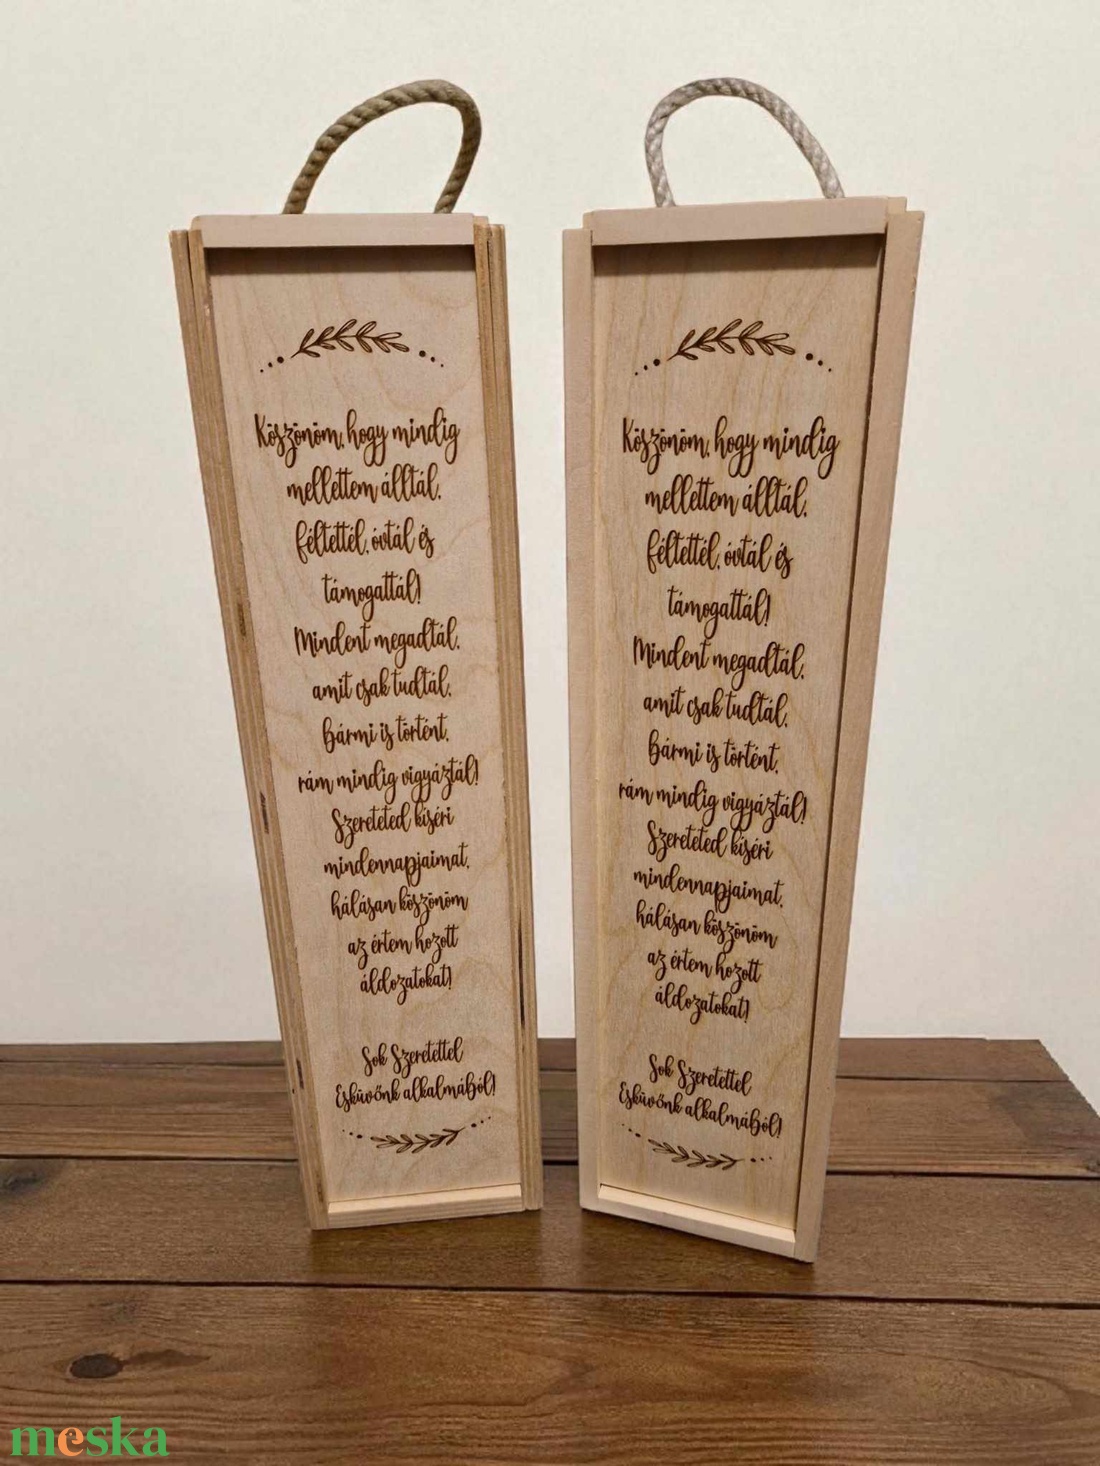 Köszönöm, hogy mindig
mellettem álltál,
féltettél, óvtál és
támogattál!
Mindent megadtál,
amit csak tudtál,
Bármi is történt,
rám mindig vigyáztál!
Szereteted kíséri
mindennapjaimat,
hálásan köszönöm
az értem hozott
áldozatokat!
Sok Szeretettel
Esküvőnk alkalmából!
Köszönöm, hogy mindig
mellettem álltál,
féltettél, óvtál és
támogattál!
Mindent megadtál,
amit csak tudtál,
Bármi is történt,
rám mindig vigyáztál!
Szereteted kíséri
mindennapjaimat,
hálásan köszönöm
az értem hozott
áldozatokat!
Sok Szeretettel
Esküvőnk alkalmából!
meska